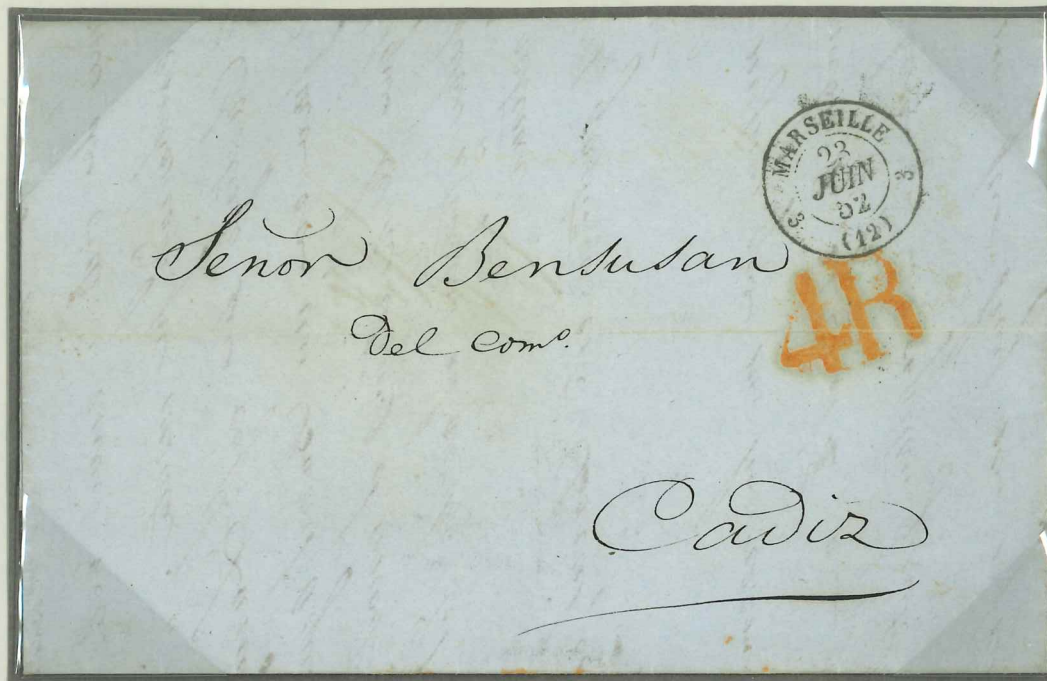 MARSEILLE
3
23
JUIN
52
3
(12)
4R
Señor Bensusan
Del Comº.
Cadiz